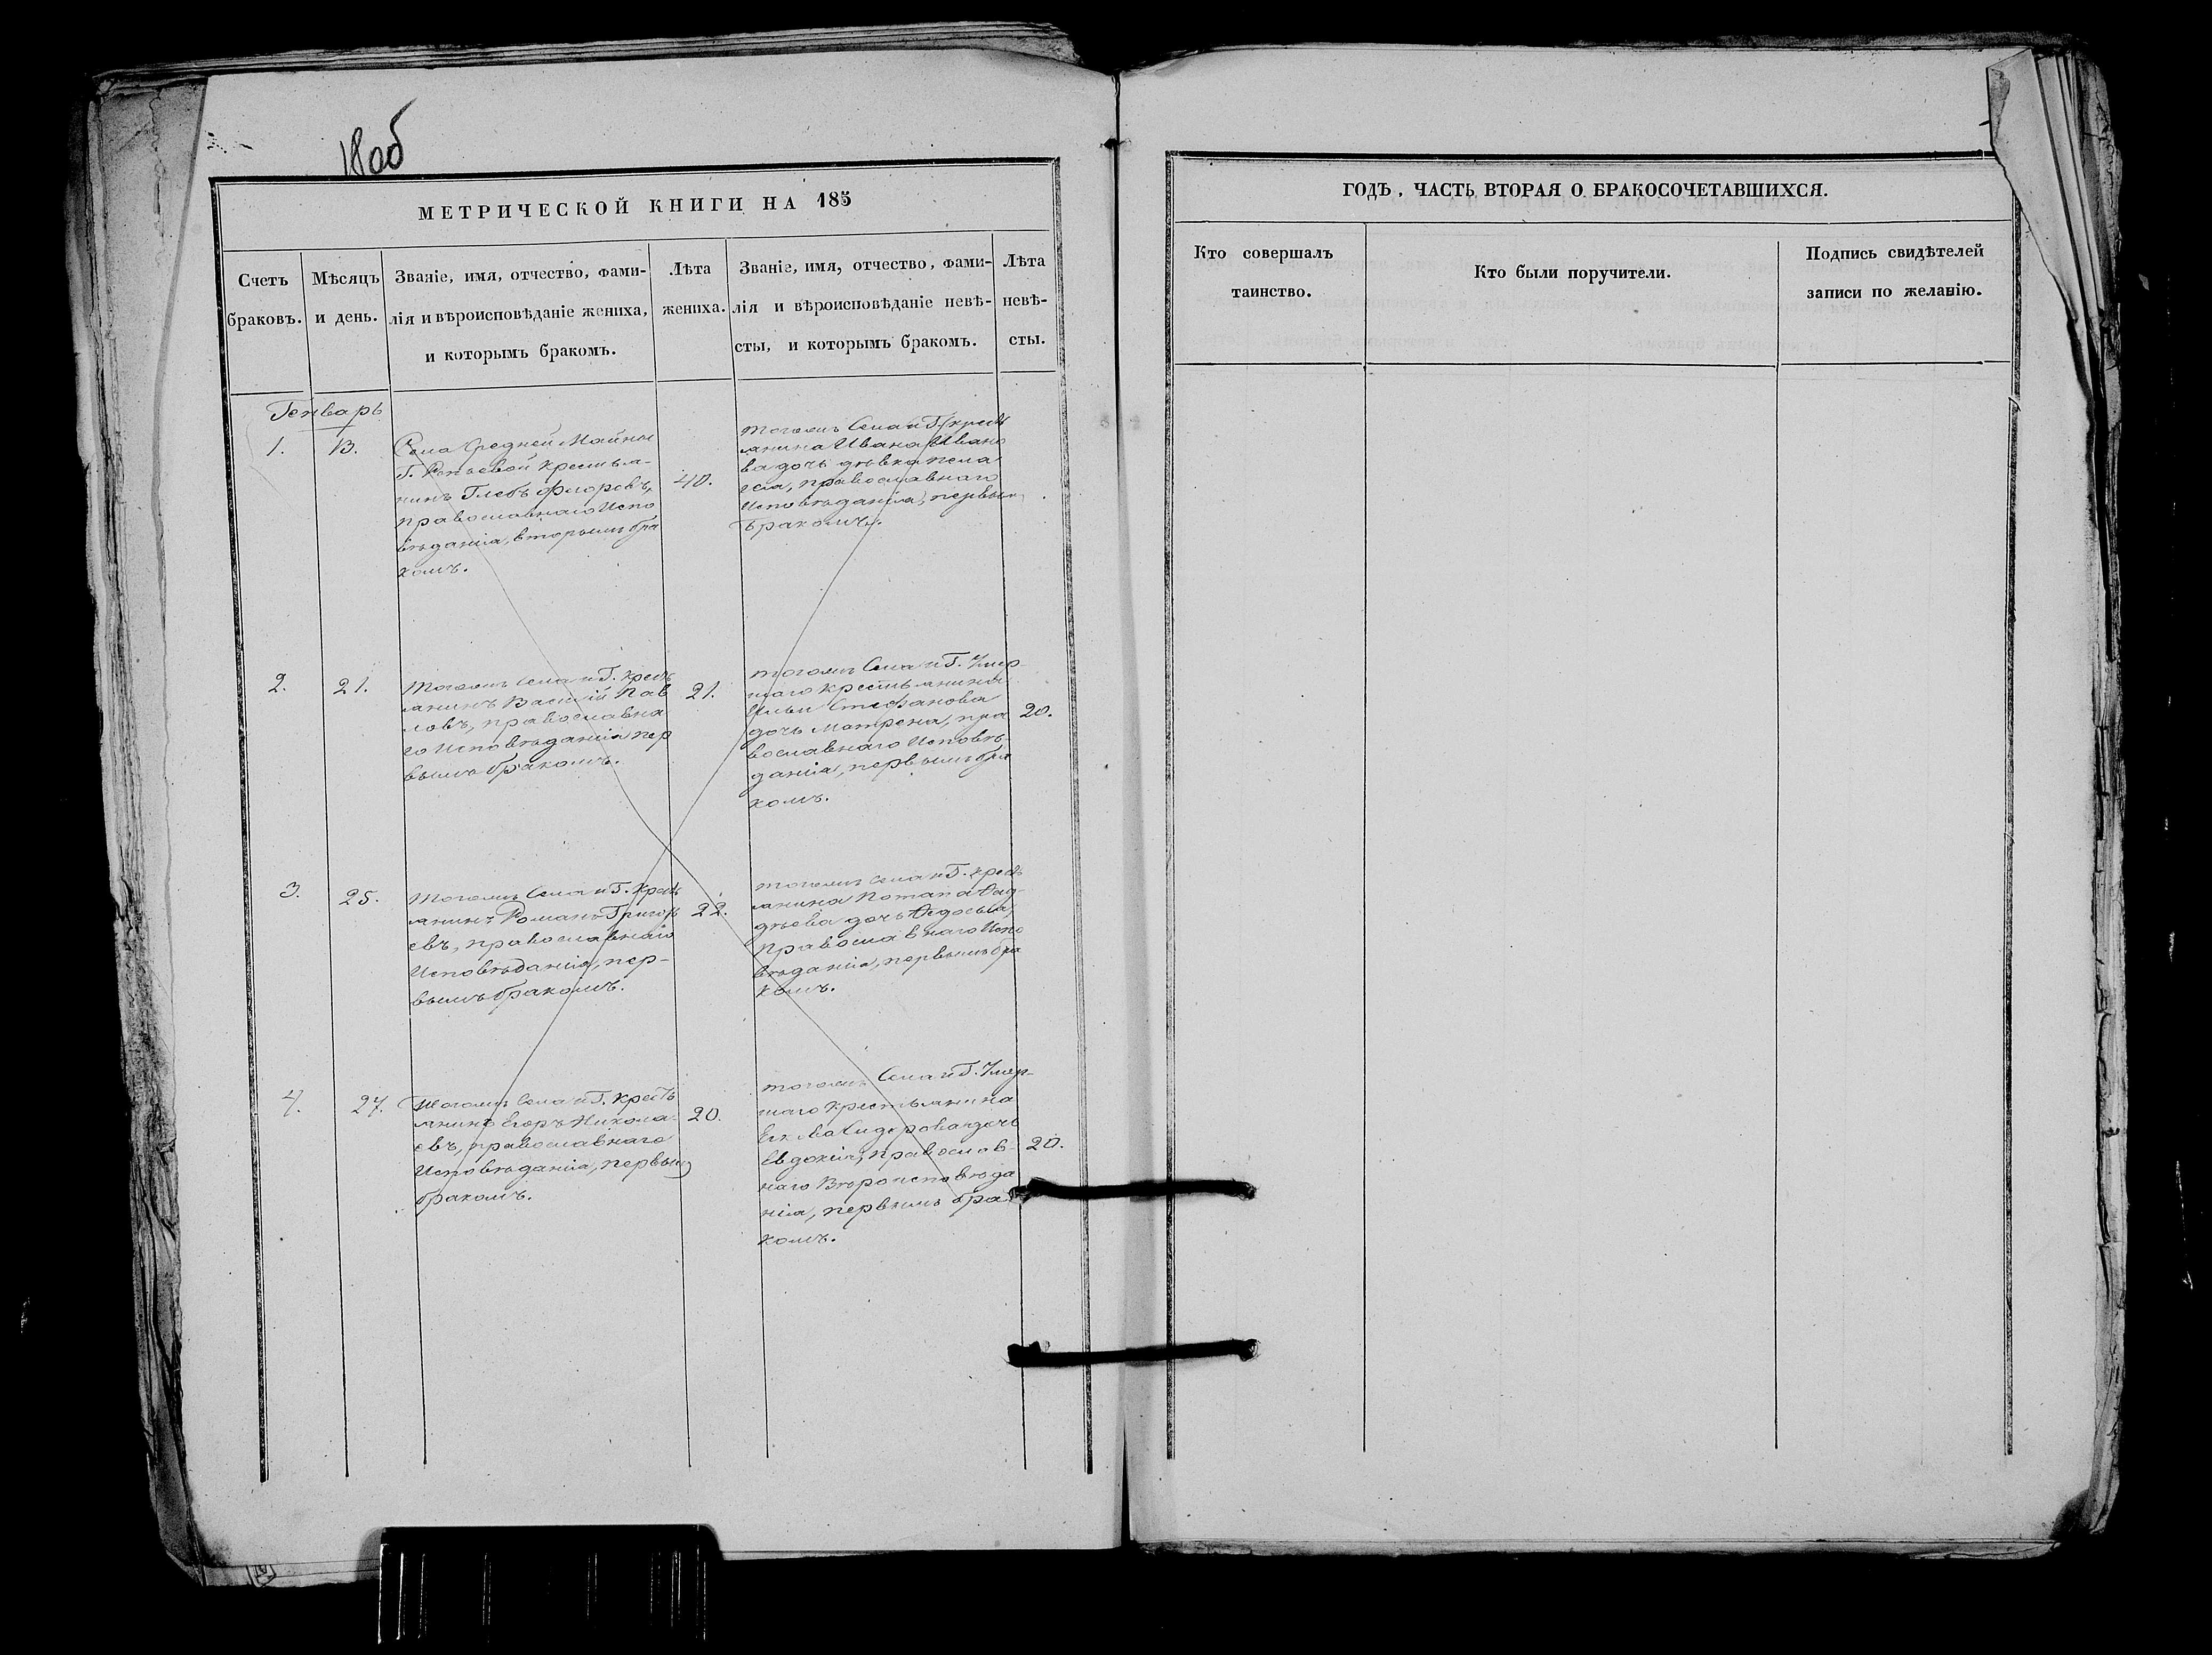 18об
МЕТРИЧЕСКОЙ КНИГИ НА 185
Счетъ
браковъ.
Мѣсяцъ
и день.
Званіе, имя, отчество, фами-
лія и вѣроисповѣданіе жениха,
и которымъ бракомъ.
Лѣта
жениха.
Званіе, имя, отчество, фами-
лія и вѣроисповѣданіе невѣ-
сты, и которымъ бракомъ.
Лѣта
невѣ-
сты.
Генварь
1.
13.
Села Средней Майны
Г. крестья-
нинъ Глебъ Флоровъ,
православнаго Испо
вѣданія, вторымъ бра
комъ.
40.
тогожъ Села и Г. крест
янина Ивана Ивано
ва дочь девка Пела
гея, православнаго
Исповѣданія, первым
бракомъ.
2.
21.
Тогожъ Села и Г. крест
янинъ Василій Пав
ловъ, православна
го Исповѣданія пер
вымъ бракомъ.
21.
тогожъ Села и Г. Умер-
шаго крестьянина
Ильи Стефанова
дочь Матрена, пра
вославнаго Исповѣ-
данія, первымъ бра
комъ.
20.
3.
25.
Тогожъ Села и Г. крест
янинъ Романъ Григорь
евъ, православнаго
Исповѣданія, пер-
вымъ бракомъ.
22.
тогожъ Села и Г. крест
янина Потапа Фад-
дѣева дочь Федосья,
православнаго Испо
вѣданія, первымъ бра
комъ.
4.
27.
Тогожъ Села и Г. Крестъ
янинъ Егоръ Никола-
евъ, православнаго
Исповѣданія, первым
бракомъ.
20.
тогожъ Села и Г. Умер-
шаго крестьянина
Сидорова дочь
Евдокія, православ-
наго Вѣроисповѣда
нія, первымъ бра
комъ.
20.
ГОДЪ, ЧАСТЬ ВТОРАЯ О БРАКОСОЧЕТАВШИХСЯ.
Кто совершалъ
таинство.
Кто были поручители.
Подпись свидѣтелей
записи по желанію.